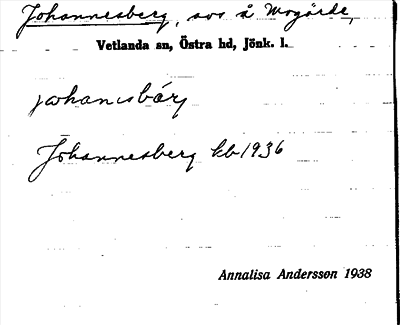 Johannesberg, avs å Mogärde,
Vetlanda sn, Östra hd, Jönk. l.
johanɩsbárj
Johannesberg kb 1936
Annalisa Andersson 1938